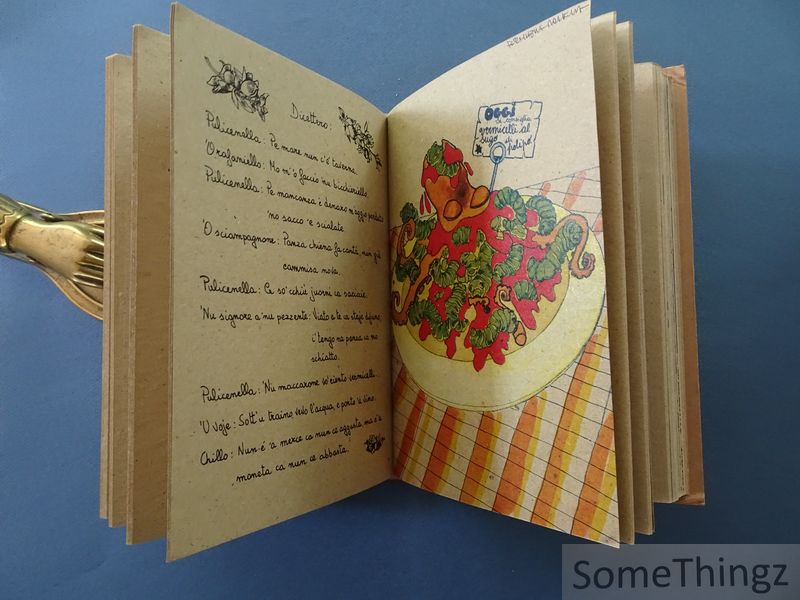 Dicettero:
Pulicenella: Pe mare nun c'è taverna.
'O rafaniello: Mo m'o faccio 'nu bicchieriello.
Pulicenella: Pe mancanza 'e denaro m'aggio perduto
'no sacco 'e scialate.
'O sciampagnone: Panza chiena fa cantà, nun già
cammisa nova.
Pulicenella: Ce so' cchiù juorni ca saciccie.
'Nu signore a 'nu pezzente: Viato a te ca staje diuno,
i' tengo na panza ca mo
schiatto.
Pulicenella: 'Nu maccarone so' ciento vermicelli.
'U voje: Sott'u traino, vevo l'acqua, e porto 'o vino.
Chillo: Nun è 'a merce ca nun ce aggusta, ma è 'a
moneta ca nun ce abbasta.
OGGI
si consiglia
vermicelli al
sugo di
polipo
SomeThingz